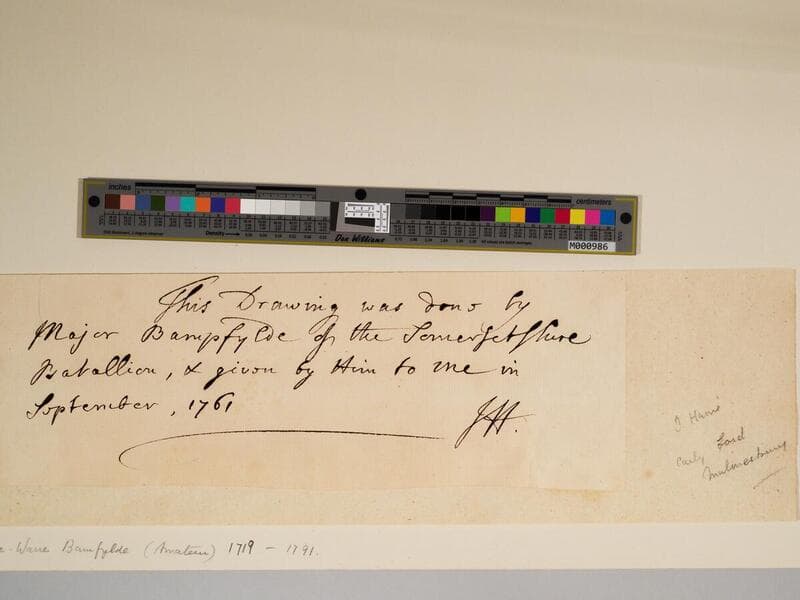 inches
centimeters
Density
Don Williams
M000986
This Drawing was done by
Major Bampfylde of the Somersetshire
Batallion, & given by Him to Me in
September, 1761
JH.
J Harris
early Lord
Malmesbury
Warre Bamfylde (Amateur) 1719 - 1791.